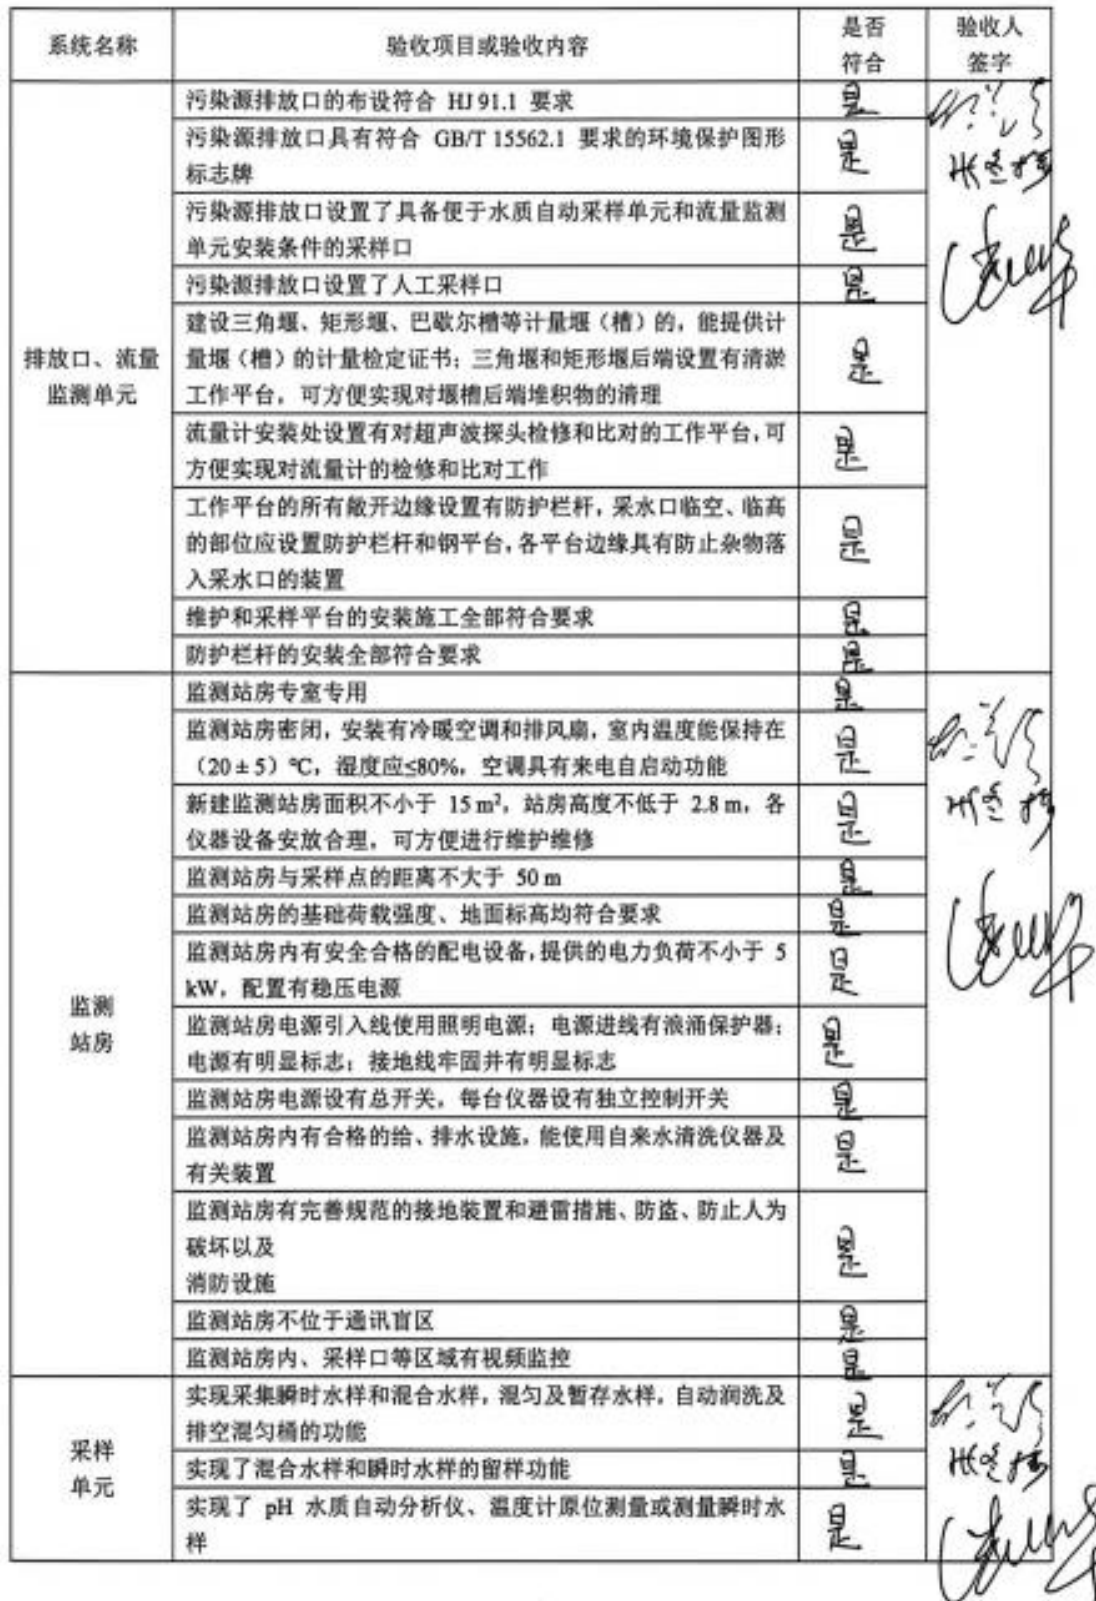 系统名称 验收项目或验收内容 是否 验收人
符合 签字
污染源排放口的布设符合 HJ 91.1 要求 是
污染源排放口具有符合 GB/T 15562.1 要求的环境保护图形 是
标志牌
污染源排放口设置了具备便于水质自动采样单元和流量监测 是
单元安装条件的采样口
污染源排放口设置了人工采样口 是
排放口、流量
监测单元
建设三角堰、矩形堰、巴歇尔槽等计量堰（槽）的，能提供计
量堰（槽）的计量检定证书；三角堰和矩形堰后端设置有清淤 是
工作平台，可方便实现对堰槽后端堆积物的清理
流量计安装处设置有对超声波探头检修和比对的工作平台，可 是
方便实现对流量计的检修和比对工作
工作平台的所有敞开边缘设置有防护栏杆，采水口临空、临高
的部位应设置防护栏杆和钢平台，各平台边缘具有防止杂物落 是
入采水口的装置
维护和采样平台的安装施工全部符合要求 是
防护栏杆的安装全部符合要求 是
监测
站房
监测站房专室专用 是
监测站房密闭，安装有冷暖空调和排风扇，室内温度能保持在 是
（20±5）℃，湿度应≤80%，空调具有来电自启动功能
新建监测站房面积不小于 15 m²，站房高度不低于 2.8 m，各 是
仪器设备安放合理，可方便进行维护维修
监测站房与采样点的距离不大于 50 m 是
监测站房的基础荷载强度、地面标高均符合要求 是
监测站房内有安全合格的配电设备，提供的电力负荷不小于 5 是
kW，配置有稳压电源
监测站房电源引入线使用照明电源；电源进线有浪涌保护器； 是
电源有明显标志；接地线牢固并有明显标志
监测站房电源设有总开关，每台仪器设有独立控制开关 是
监测站房内有合格的给、排水设施，能使用自来水清洗仪器及 是
有关装置
监测站房有完善规范的接地装置和避雷措施、防盗、防止人为
破坏以及 是
消防设施
监测站房不位于通讯盲区 是
监测站房内、采样口等区域有视频监控 是
采样
单元
实现采集瞬时水样和混合水样，混匀及暂存水样，自动润洗及 是
排空混匀桶的功能
实现了混合水样和瞬时水样的留样功能 是
实现了 pH 水质自动分析仪、温度计原位测量或测量瞬时水 是
样